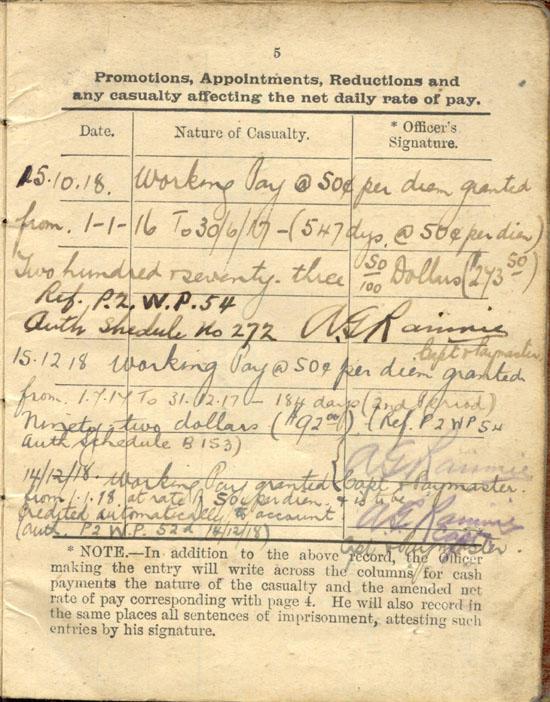 5
Promotions, Appointments, Reductions and
any casualty affecting the net daily rate of pay.
Date. Nature of Casualty. * Officer's Signature.
15.10.18. Working Pay @ 50¢ per diem granted
from. 1-1-16 To 30/6/17 - (547 dys. @ 50¢ per diem)
Two hundred & seventy. three 50/100 Dollars ($273 50)
Ref. P.2. W.P. 54
Auth Shedule No 272 A G Rainnie
Capt & Paymaster
15.12.18 Working Pay @ 50¢ per diem granted
from 1.7.17 To 31.12.17 - 184 days (2nd Period)
Ninety-two dollars ($92 00) (Ref. P2 WP 54
Auth Schedule B 153)
A G Rainnie
Capt & Paymaster.
14/12/18. Working Pay granted
from 1.1.18 at rate of 50¢ per diem. & is to be
credited automatically to account
(auth. P2 W.P. 52d 14/12/18)
A G Rainnie
Capt
Capt & Paymaster.
* NOTE.—In addition to the above record, the Officer
making the entry will write across the columns for cash
payments the nature of the casualty and the amended net
rate of pay corresponding with page 4. He will also record in
the same places all sentences of imprisonment, attesting such
entries by his signature.